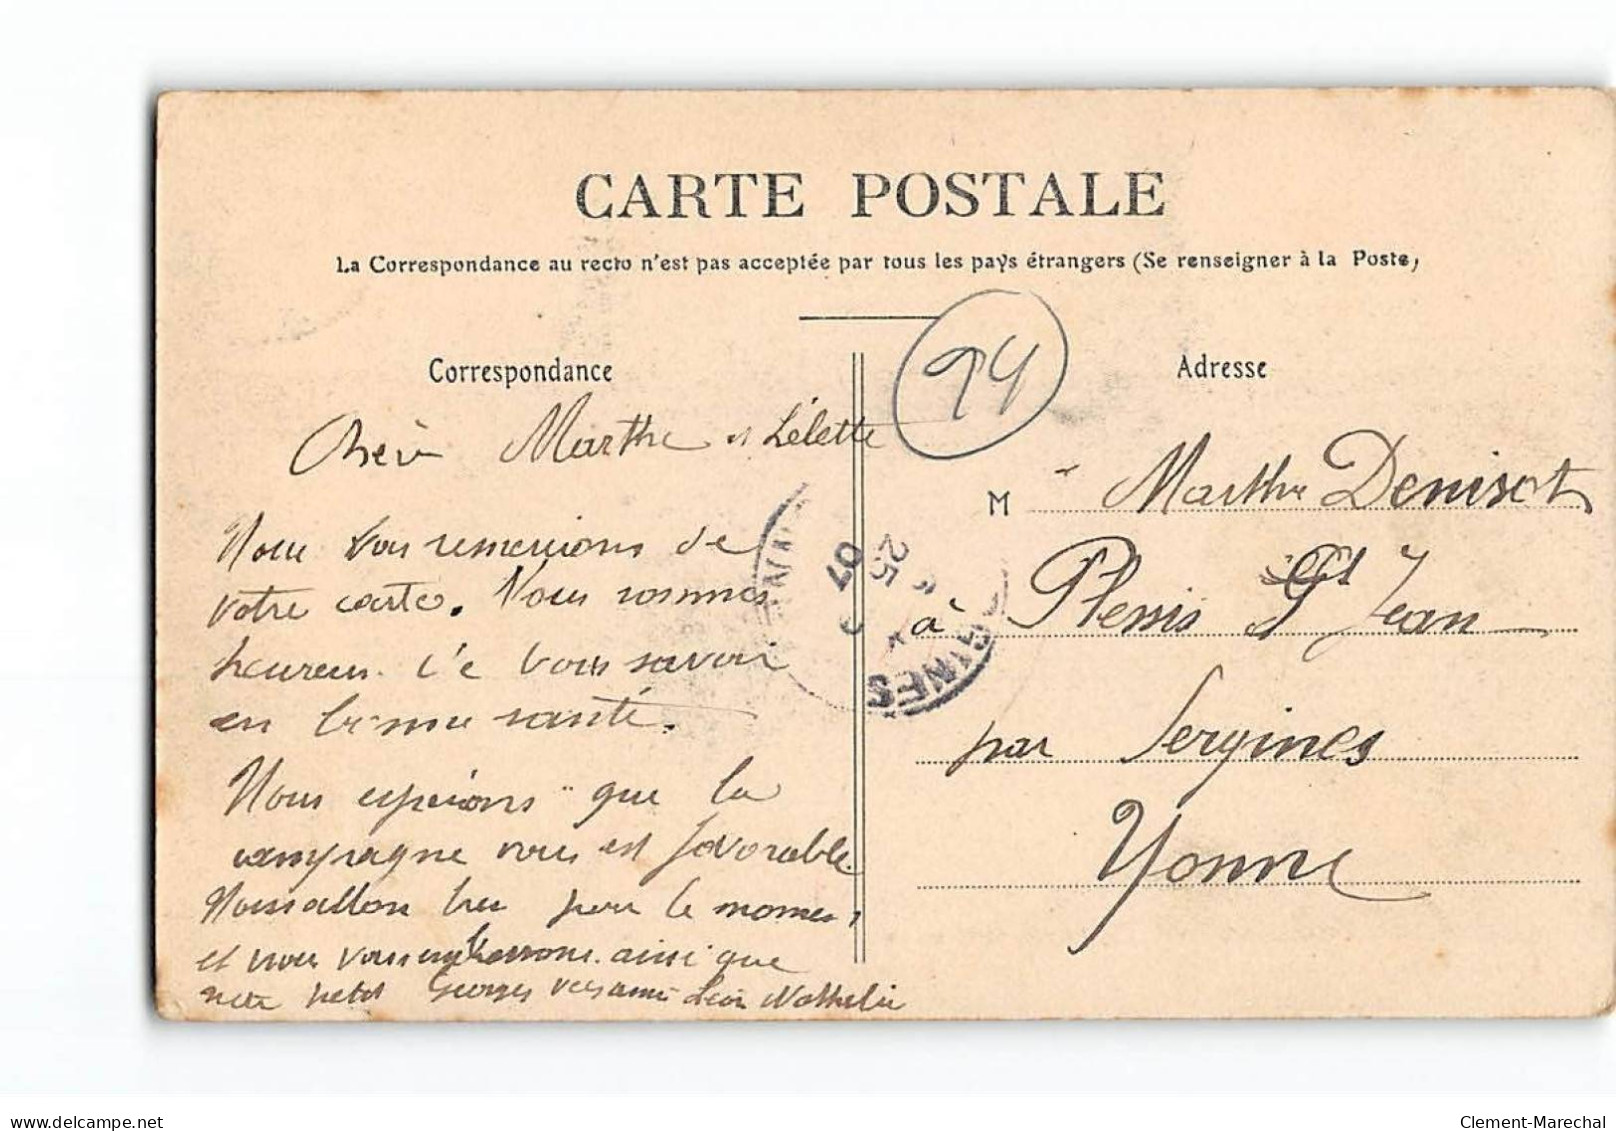 CARTE POSTALE
La Correspondance au recto n'est pas acceptée par tous les pays étrangers (Se renseigner à la Poste)
94
Correspondance
Adresse
Marthe et Lélette
Nous vous remercions de
votre carte. Nous sommes
heureux de vous savoir
en bonne santé.
Nous espérions que la
campagne vous est favorable
Nous allon bien pour le moment
et nous vous embrassons ainsi que
notre petit Georges vos amis Léon Mathilde
M Marthe Denisot
à Plessis St Jean
par Sergines
Yonne
25
07
GINES
delcampe.net
Clement-Marechal